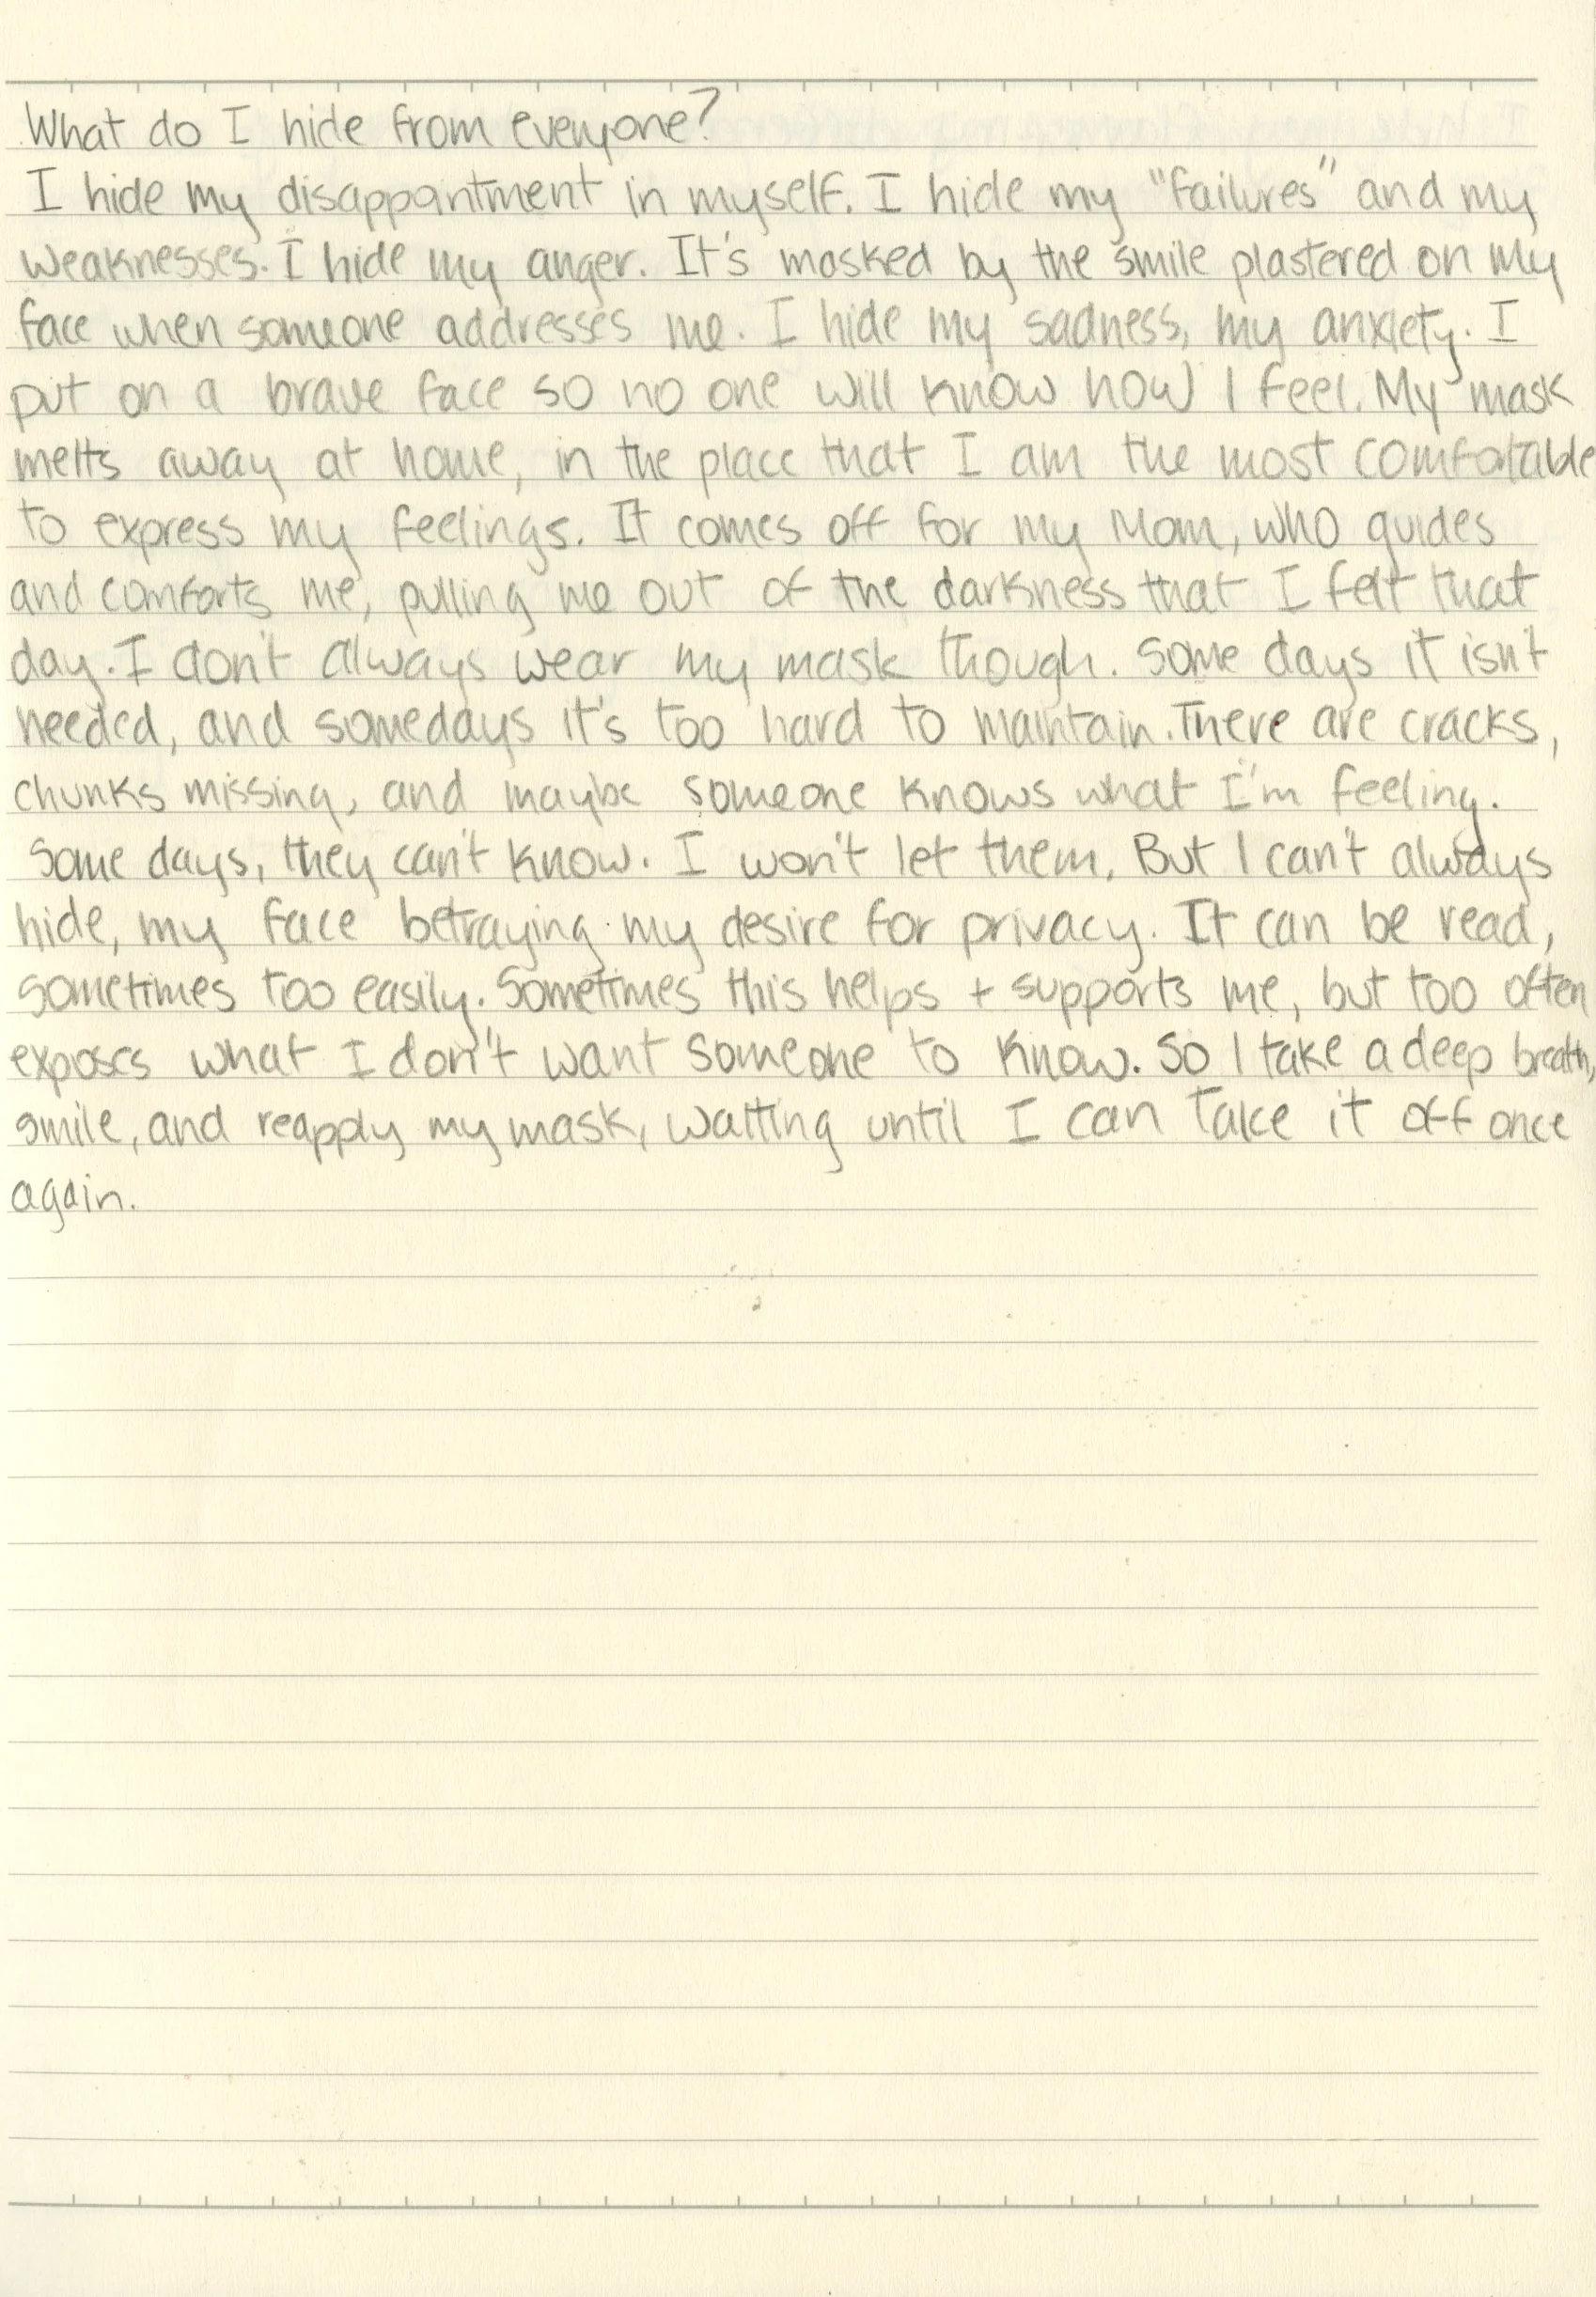 What do I hide from everyone?
I hide my disappointment in myself. I hide my "failures" and my
weaknesses. I hide my anger. It's masked by the smile plastered on my
face when someone addresses me. I hide my sadness, my anxiety. I
put on a brave face so no one will know how I feel. My mask
melts away at home, in the place that I am the most comfortable
to express my feelings. It comes off for my Mom, who guides
and comforts me, pulling me out of the darkness that I felt that
day. I don't always wear my mask though. Some days it isn't
needed, and somedays it's too hard to maintain. There are cracks,
chunks missing, and maybe someone knows what I'm feeling.
Some days, they can't know. I won't let them. But I can't always
hide, my face betraying my desire for privacy. It can be read,
sometimes too easily. Sometimes this helps + supports me, but too often
exposes what I don't want someone to know. So I take a deep breath,
smile, and reapply my mask, waiting until I can take it off once
again.